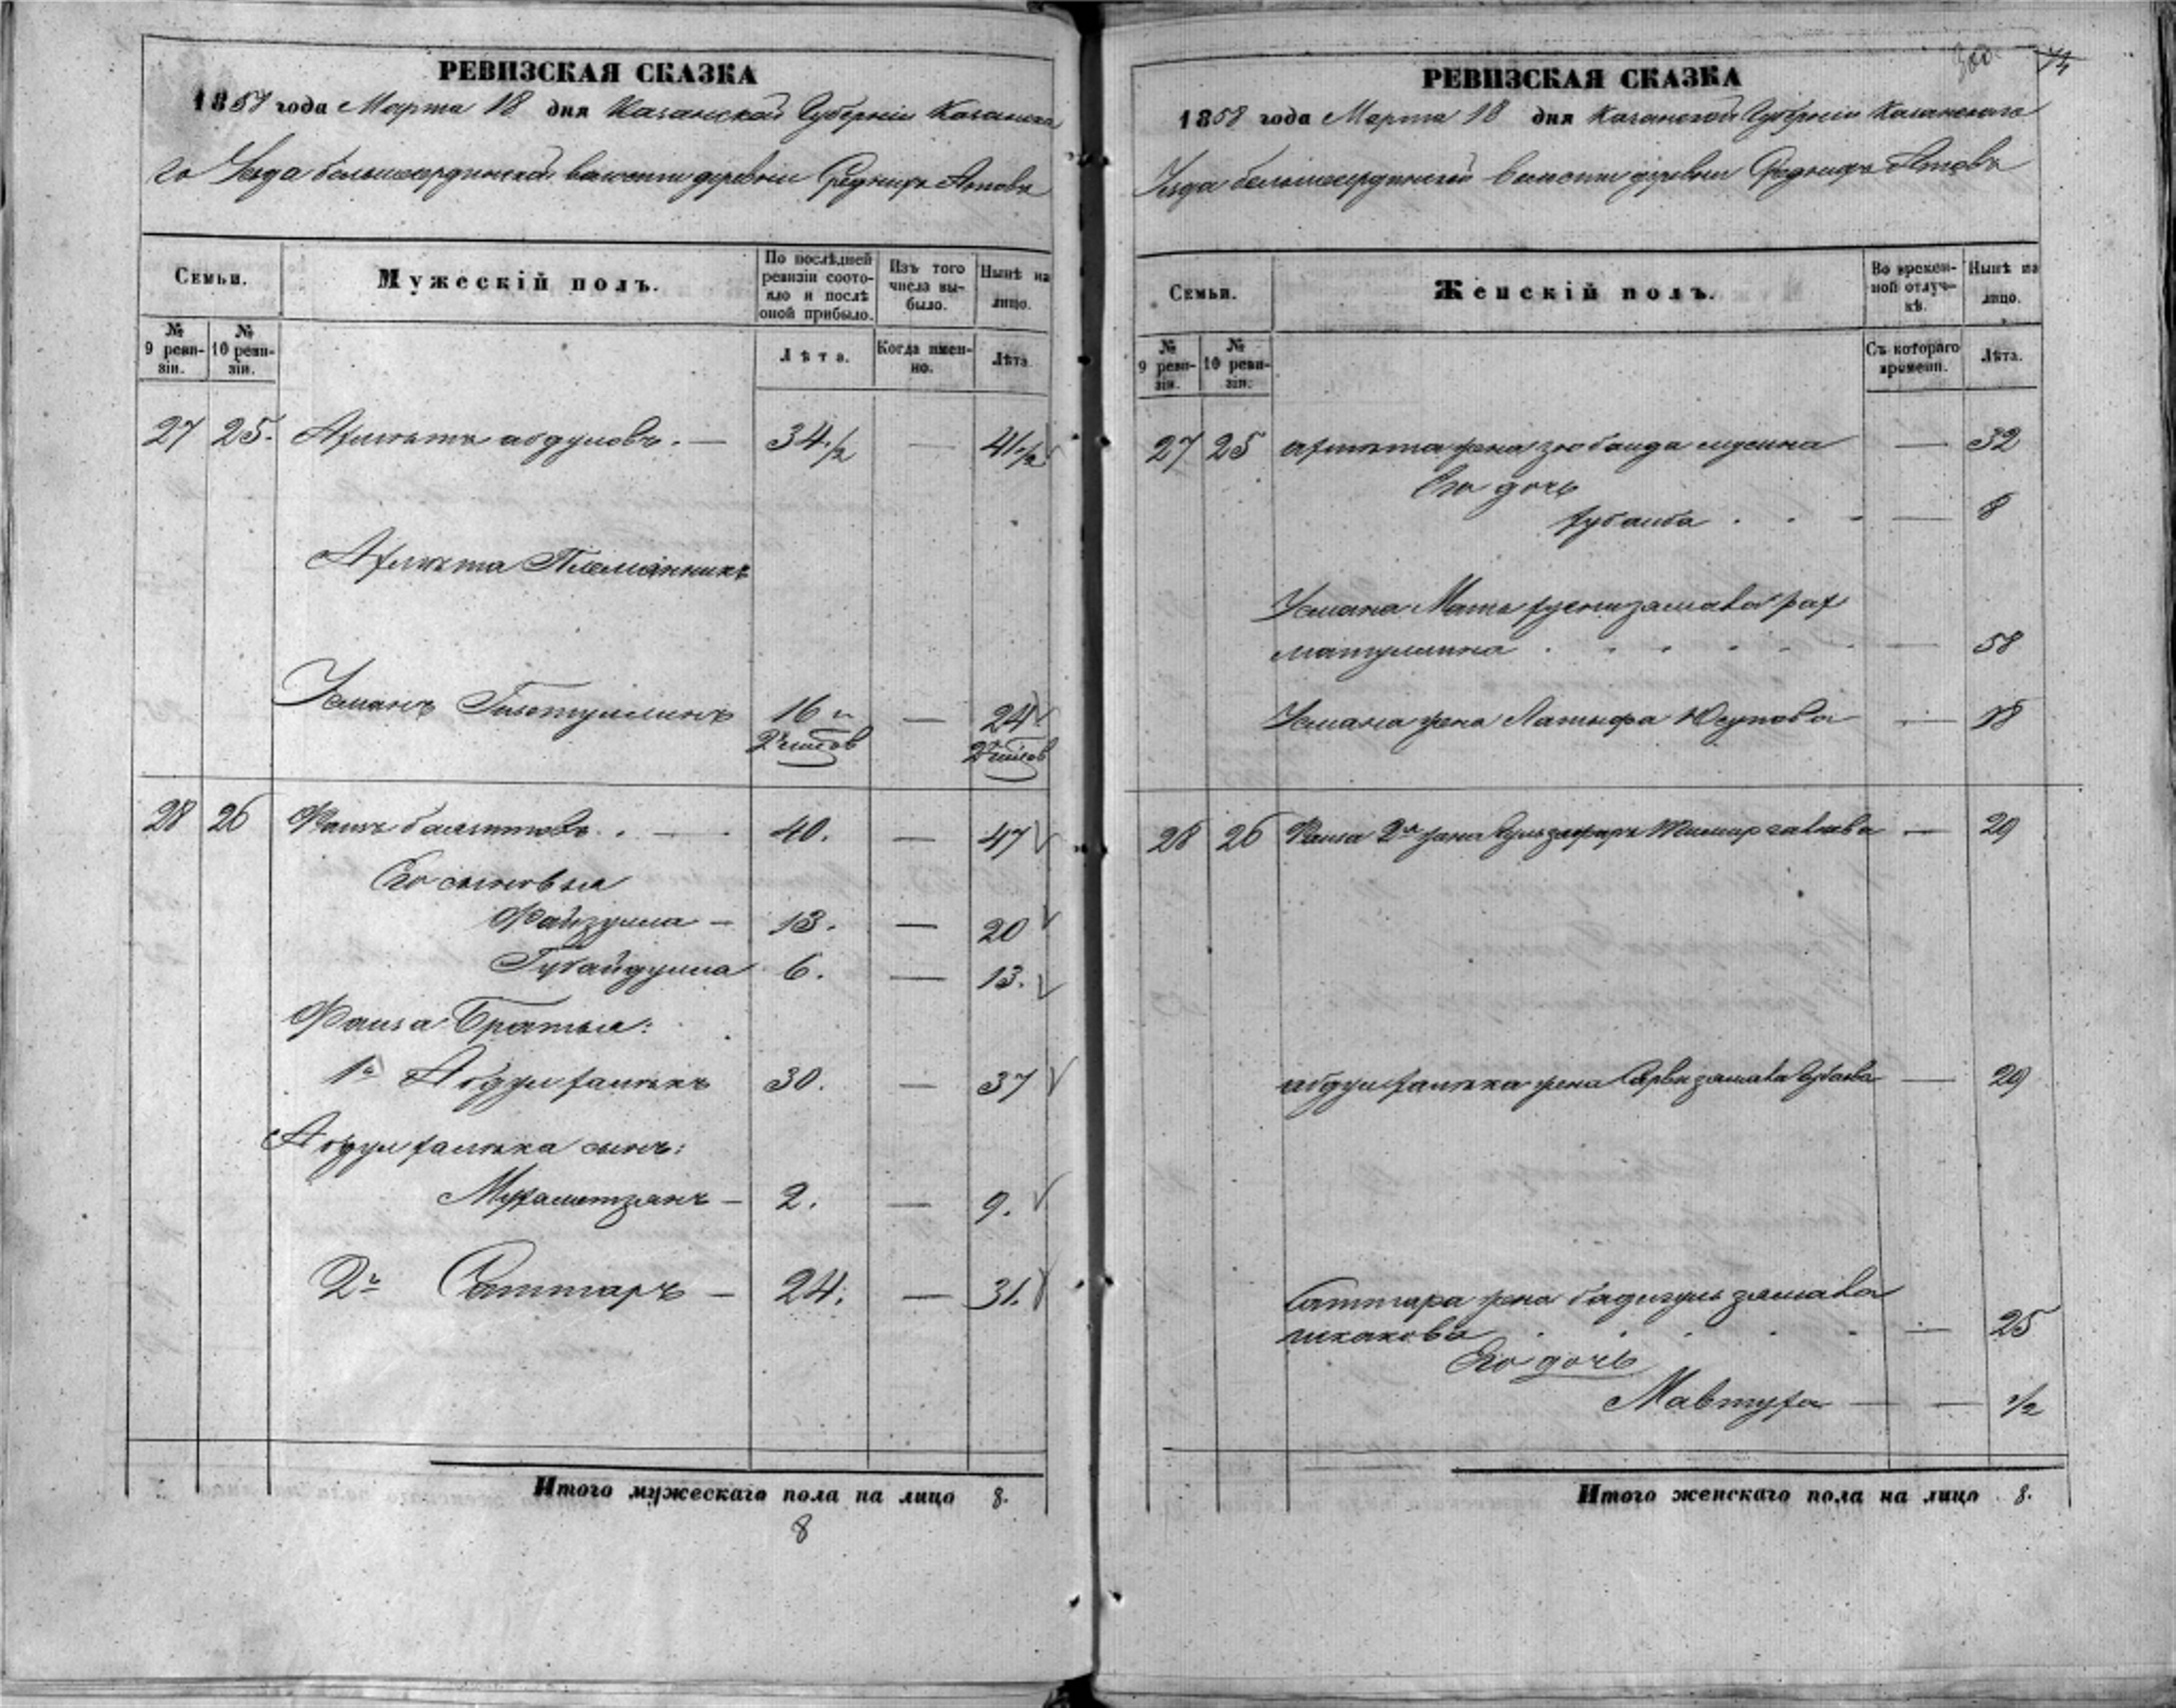 РЕВИЗСКАЯ СКАЗКА
1858 года Марта 18 дня Казанской Губернiи Казанска
го Уезда большесердинской волости деревни Среднихъ Атовъ
Семьи.
Мужескiй полъ.
По послѣдней ревизiи состояло и послѣ оной прибыло.
Изъ того числа выбыло.
Нынѣ на лицо.
№ 9 ревизiи.
№ 10 ревизiи.
Лѣта.
Когда именно.
Лѣта.
27 25. Ахметъ абдуловъ. — 34 1/2 — 41 1/2
Ахмета Племянникъ
Усманъ 16 — 24
28 26 Фаизъ 40. — 47
Его сыновья
Файзулла — 13. — 20
Губайдулла 6. — 13.
Фаиза Братья:
1й Абдулхаликъ 30. — 37
Абдулхалика сынъ:
Мухаметзянъ — 2. — 9.
2й Саттаръ — 24. — 31.
Итого мужескаго пола на лицо 8.
8
РЕВИЗСКАЯ СКАЗКА
1858 года Марта 18 дня Казанской Губернiи Казанскаго
Уезда большесердинской волости деревни Среднихъ Атовъ
Семьи.
Женскiй полъ.
Во временной отлучкѣ.
Нынѣ на лицо.
№ 9 ревизiи.
№ 10 ревизiи.
Съ котораго времени.
Лѣта.
27 25 ахмета жена зюбаида мусина — 32
Его дочь
— 8
Усмана Мать рах
матуллина — 58
Усмана жена Латыфа Юсупова — 18
28 26 Фаиза 2я жена — 29
абдулхалика жена — 29
Саттара жена
— 25
Его дочь
Мавтуха — — 1/2
Итого женскаго пола на лицо 8.